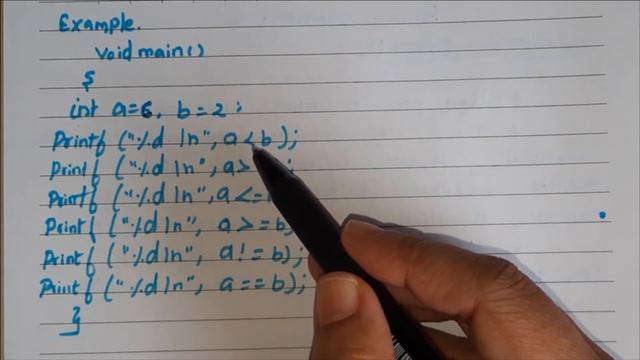 Example.
Void main()
{
int a=6, b=2;
Printf ("%d \n", a<b);
Printf ("%d \n", a> ;
Printf ("%d \n", a<=
Printf ("%d \n", a>=b)
Printf ("%d \n", a!=b);
Printf ("%d \n", a==b);
}